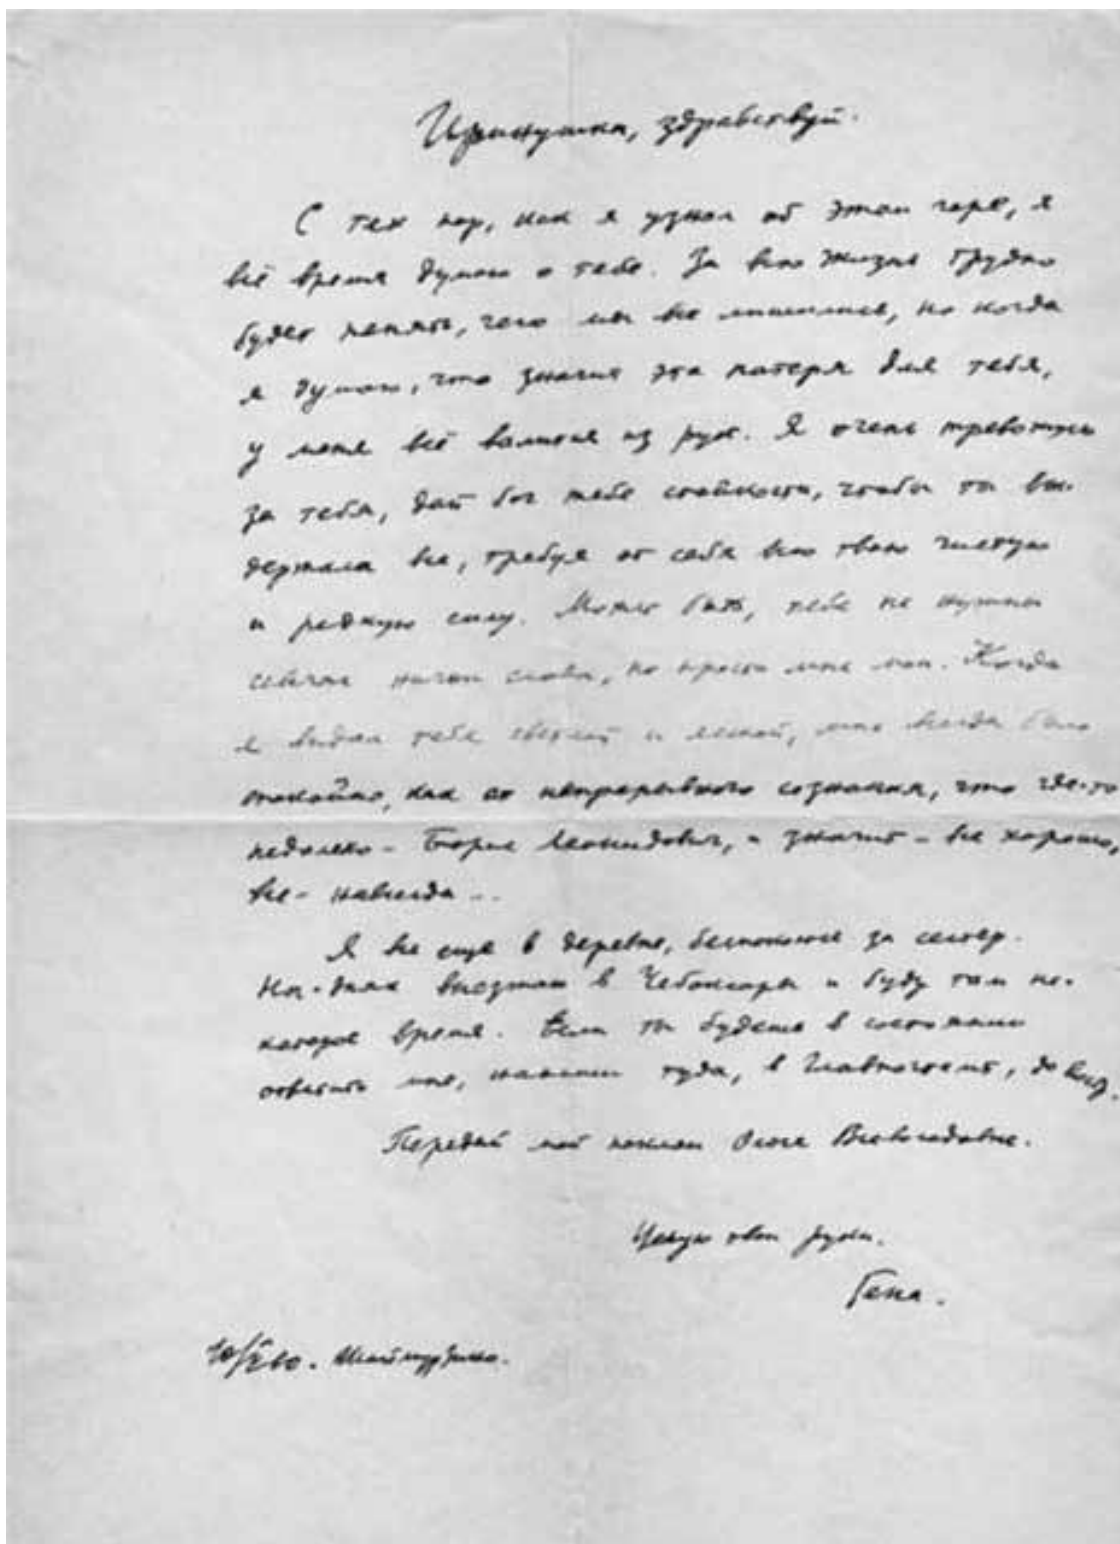 Иринушка, здравствуй.
С тех пор, как я узнал об этом горе, я
всё время думаю о тебе. За всю жизнь трудно
будет понять, чего мы все лишились, но когда
я думаю, что значит эта потеря для тебя,
у меня всё валится из рук. Я очень тревожусь
за тебя, дай бог тебе стойкости, чтобы ты вы-
держала все, требуя от себя всю твою чистую
и редкую силу. Может быть, тебе не нужны
сейчас ничьи слова, но прости мне мои. Когда
я видел тебя светлой и ясной, мне всегда было
спокойно, как от непрерывного сознания, что где-то
недалеко – Борис Леонидович, и значит – все хорошо,
все – навсегда...
Я все еще в деревне, беспокоюсь за сестер.
На-днях выезжаю в Чебоксары и буду там не-
которое время. Если ты будешь в состоянии
ответить мне, напиши туда, в Главпочтамт, до вост.
Передай мой поклон Ольге Всеволодовне.
Целую твои руки.
Гена.
Шаймурзино.